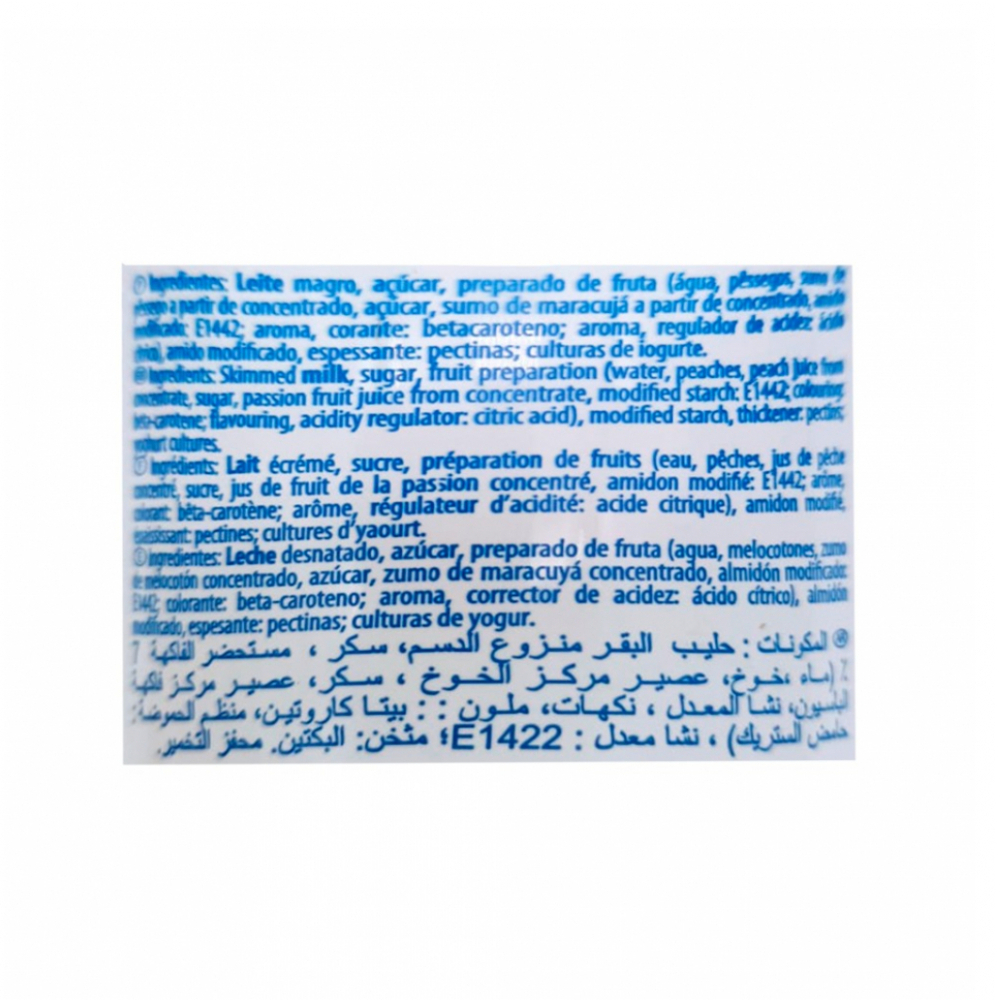 Ingredientes: Leite magro, açúcar, preparado de fruta (água, pêssegos, sumo de
a partir de concentrado, açúcar, sumo de maracujá a partir de concentrado, amido
modificado: E1442; aroma, corante: betacaroteno; aroma, regulador de acidez: ácido
amido modificado, espessante: pectinas; culturas de iogurte.
Ingredients: Skimmed milk, sugar, fruit preparation (water, peaches, peach juice from
concentrate, sugar, passion fruit juice from concentrate, modified starch: E1442, colouring:
beta-carotene; flavouring, acidity regulator: citric acid), modified starch, thickener: pectins;
yoghurt cultures.
Ingrédients: Lait écrémé, sucre, préparation de fruits (eau, pêches, jus de pêche
concentré, sucre, jus de fruit de la passion concentré, amidon modifié: E1442; arôme,
colorant: bêta-carotène; arôme, régulateur d'acidité: acide citrique), amidon modifié,
épaississant: pectines; cultures d'yaourt.
Ingredientes: Leche desnatado, azúcar, preparado de fruta (agua, melocotones, zumo
de melocotón concentrado, azúcar, zumo de maracuyá concentrado, almidón modificado:
E1442; colorante: beta-caroteno; aroma, corrector de acidez: ácido cítrico), almidón
modificado, espesante: pectinas; culturas de yogur.
المكونات : حليب البقر منزوع الدسم، سكر ، مستحضر الفاكهة 7
٪ (ماء ،خوخ، عصير مركز الخوخ ، سكر، عصير مركز فاكهة
الباسيون، نشا المعدل ، نكهات، ملون : : بيتا كاروتين، منظم الحموضة:
حامض الستريك) ، نشا معدل : E1422؛ مثخن: البكتين. محفز التخمير.